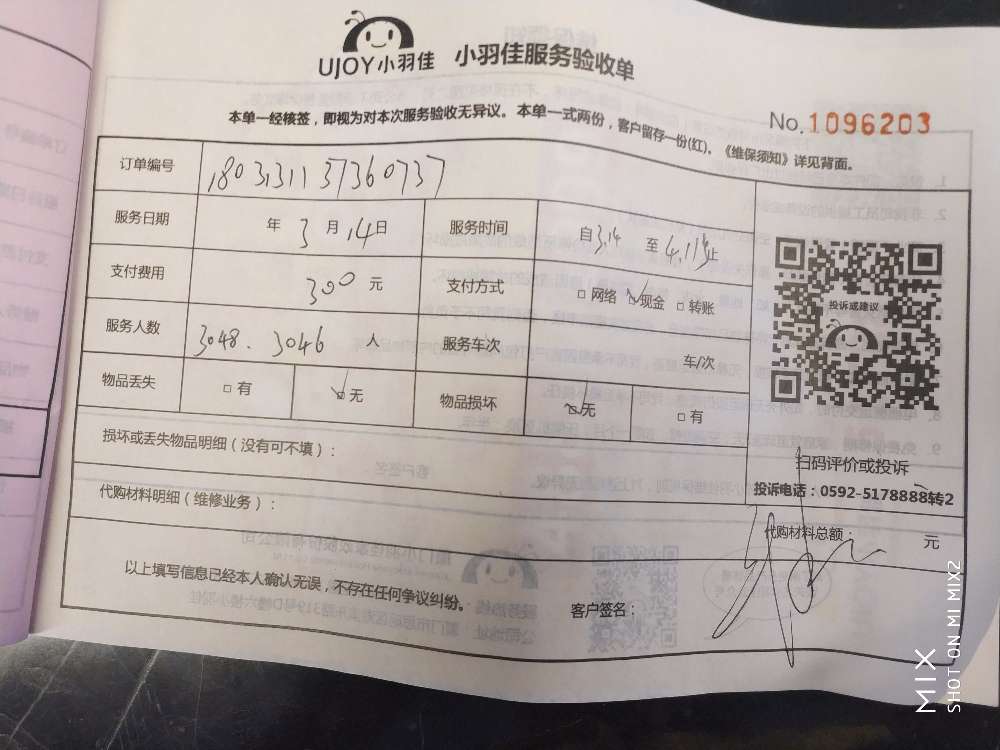 UJOY小羽佳 小羽佳服务验收单
本单一经核签，即视为对本次服务验收无异议。本单一式两份，客户留存一份(红)。《维保须知》详见背面。
No.1096203
订单编号 1803131137360737
服务日期 年 3 月 14 日 服务时间 自 3.14 至 4.13 止
支付费用 300 元 支付方式 □ 网络 ☑ 现金 □ 转账
服务人数 3048. 3046 人 服务车次 车/次
物品丢失 □ 有 ☑ 无 物品损坏 ☑ 无 □ 有
投诉或建议
扫码评价或投诉
投诉电话：0592-5178888转2
损坏或丢失物品明细（没有可不填）：
代购材料明细（维修业务）：
代购材料总额： 元
以上填写信息已经本人确认无误，不存在任何争议纠纷。
客户签名：
MIX
SHOT ON MI MIX2